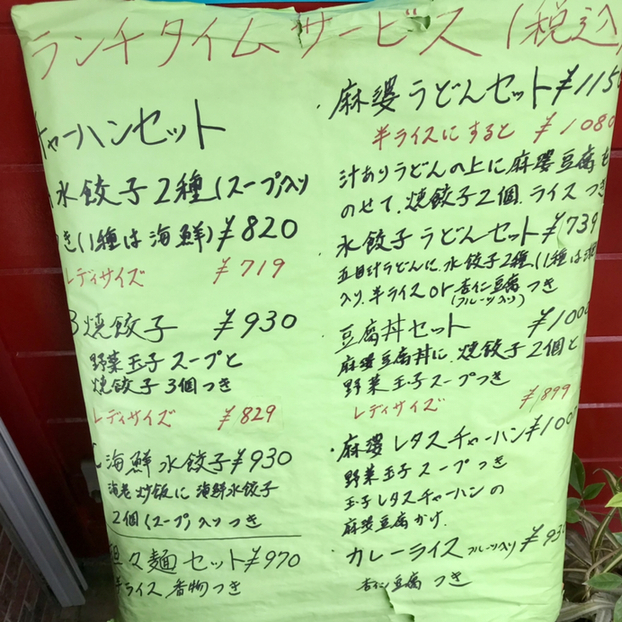 ランチタイムサービス(税込
チャーハンセット
水餃子2種(スープ)入り
つき(1種は海鮮)¥820
レディサイズ ¥719
B焼餃子 ¥930
野菜玉子スープと
焼餃子3個つき
レディサイズ ¥829
海鮮水餃子¥930
海老炒飯に海鮮水餃子
2個(スープ)入りつき
担々麺セット¥970
半ライス香物つき
・麻婆うどんセット¥115
半ライスにすると ¥1080
汁ありうどんの上に麻婆豆腐を
のせて、焼餃子2個、ライスつき
水餃子うどんセット¥739
五目汁うどんに、水餃子2種(1種は海鮮
入り、半ライスor杏仁豆腐つき
(フルーツ入り)
豆腐丼セット ¥100
麻婆豆腐丼に、焼餃子2個と
野菜玉子スープつき
レディサイズ ¥899
・麻婆レタスチャーハン¥100
野菜玉子スープつき
玉子レタスチャーハンの
麻婆豆腐かけ、
・カレーライスフルーツ入り ¥930
杏仁豆腐つき